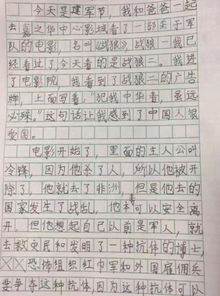 今天是建军节,我和爸爸一起
去 之华中心影城看了一部关于军
队的电影,名叫《战狼》二。战狼一我已
经看过了今天看的是战狼二。我进
了电影院,我看到了战狼二的广告
牌,上面写着:“犯我中华者,虽远
必殊。”这句话让我感到了中国人很
爱国。
电影开始了,里面的主人公叫
冷锋,因为他杀了人,所以他被开
除了,他就去了非洲,但是他去的
国家发生了战乱,他本可以安全离
开,但他想起自己以前是军人,就
去救灾民和发明了一种抗体的博士
恐怖组织红巾军和外国雇佣兵
要争夺这种抗体,因为这种抗体可以